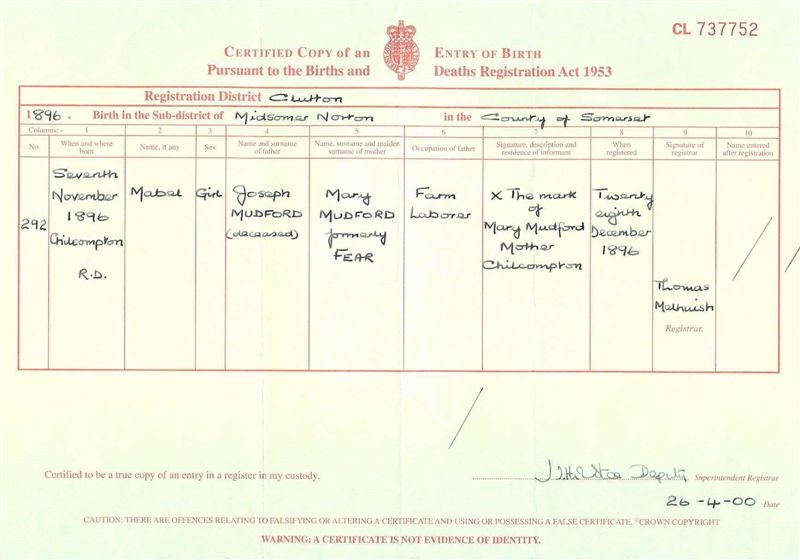 CL 737752
CERTIFIED COPY OF AN ENTRY OF BIRTH
PURSUANT TO THE BIRTHS AND DEATHS REGISTRATION ACT 1953
Registration District Clutton
1896. Birth in the Sub-district of Midsomer Norton in the County of Somerset
Columns:- 1 2 3 4 5 6 7 8 9 10
No.
When and where born
Name, if any
Sex
Name and surname of father
Name, surname and maiden surname of mother
Occupation of father
Signature, description and residence of informant
When registered
Signature of registrar
Name entered after registration
292
Seventh
November
1896
Chilcompton
R.D.
Mabel
Girl
Joseph
MUDFORD
(deceased)
Mary
MUDFORD
formerly
FEAR
Farm
Laborer
X The mark
of
Mary Mudford
Mother
Chilcompton
Twenty
eighth
December
1896
Thomas
Melhuish
Registrar.
Certified to be a true copy of an entry in a register in my custody.
Deputy Superintendent Registrar
26-4-00 Date
CAUTION: THERE ARE OFFENCES RELATING TO FALSIFYING OR ALTERING A CERTIFICATE AND USING OR POSSESSING A FALSE CERTIFICATE. ©CROWN COPYRIGHT
WARNING: A CERTIFICATE IS NOT EVIDENCE OF IDENTITY.